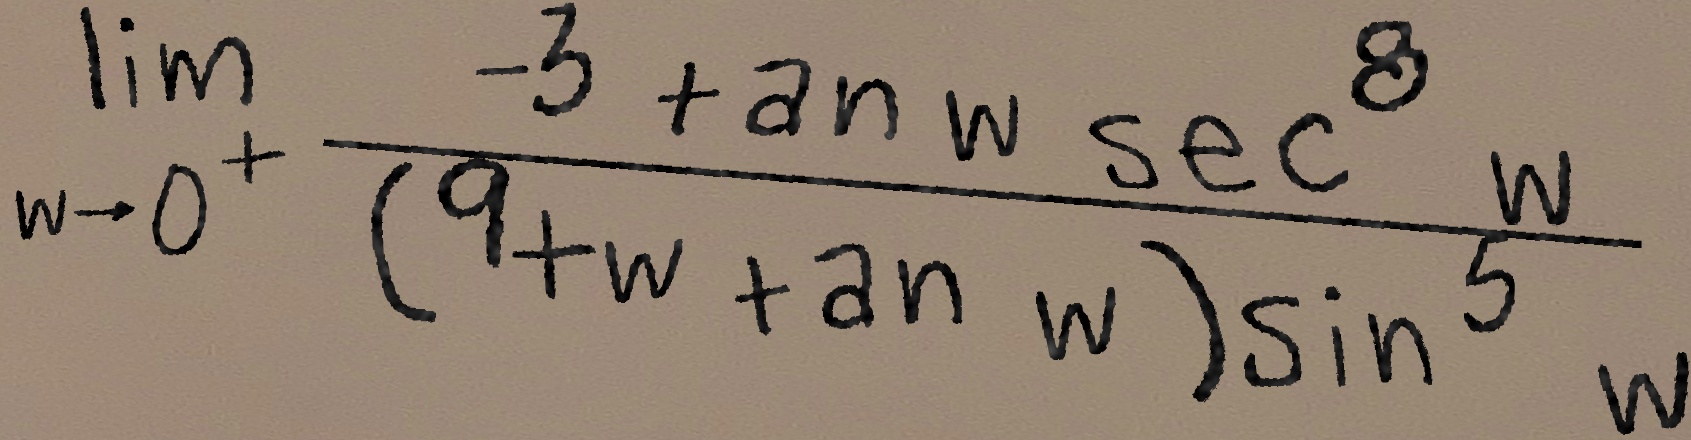 \lim_{w \to 0^+} \frac{-3 \tan w \sec^8 w}{(9 + w \tan w) \sin^5 w}